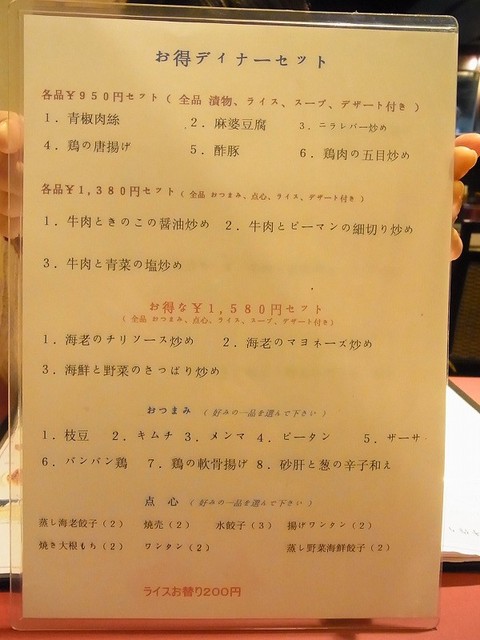 お得ディナーセット
各品￥950円セット（ 全品 漬物、ライス、スープ、デザート付き ）
1．青椒肉絲　2．麻婆豆腐　3．ニラレバー炒め
4．鶏の唐揚げ　5．酢豚　6．鶏肉の五目炒め
各品￥1,380円セット（ 全品 おつまみ、点心、ライス、デザート付き ）
1．牛肉ときのこの醤油炒め　2．牛肉とピーマンの細切り炒め
3．牛肉と青菜の塩炒め
お得な￥1,580円セット
（ 全品 おつまみ、点心、ライス、スープ、デザート付き）
1．海老のチリソース炒め　2．海老のマヨネーズ炒め
3．海鮮と野菜のさっぱり炒め
おつまみ （ 好みの一品を選んで下さい ）
1．枝豆　2．キムチ　3．メンマ　4．ピータン　5．ザーサ
6．バンバン鶏　7．鶏の軟骨揚げ　8．砂肝と葱の辛子和え
点心 （ 好みの一品を選んで下さい ）
蒸し海老餃子（2）　焼売（2）　水餃子（3）　揚げワンタン（2）
焼き大根もち（2）　ワンタン（2）　蒸し野菜海鮮餃子（2）
ライスお替り200円